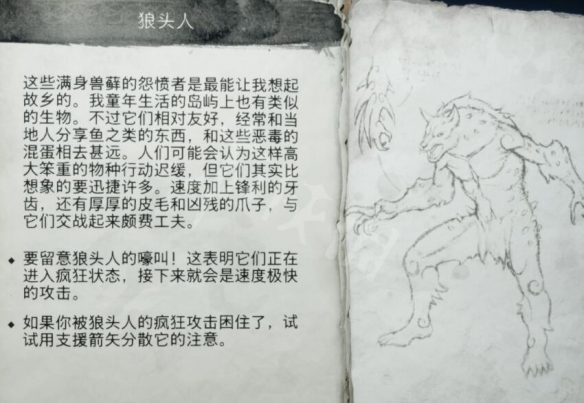 狼头人
这些满身兽藓的怨愤者是最能让我想起
故乡的。我童年生活的岛屿上也有类似
的生物。不过它们相对友好，经常和当
地人分享鱼之类的东西，和这些恶毒的
混蛋相去甚远。人们可能会认为这样高
大笨重的物种行动迟缓，但它们其实比
想象的要迅捷许多。速度加上锋利的牙
齿，还有厚厚的皮毛和凶残的爪子，与
它们交战起来颇费工夫。
◆ 要留意狼头人的嚎叫！这表明它们正在
进入疯狂状态，接下来就会是速度极快
的攻击。
◆ 如果你被狼头人的疯狂攻击困住了，试
试用支援箭矢分散它的注意。